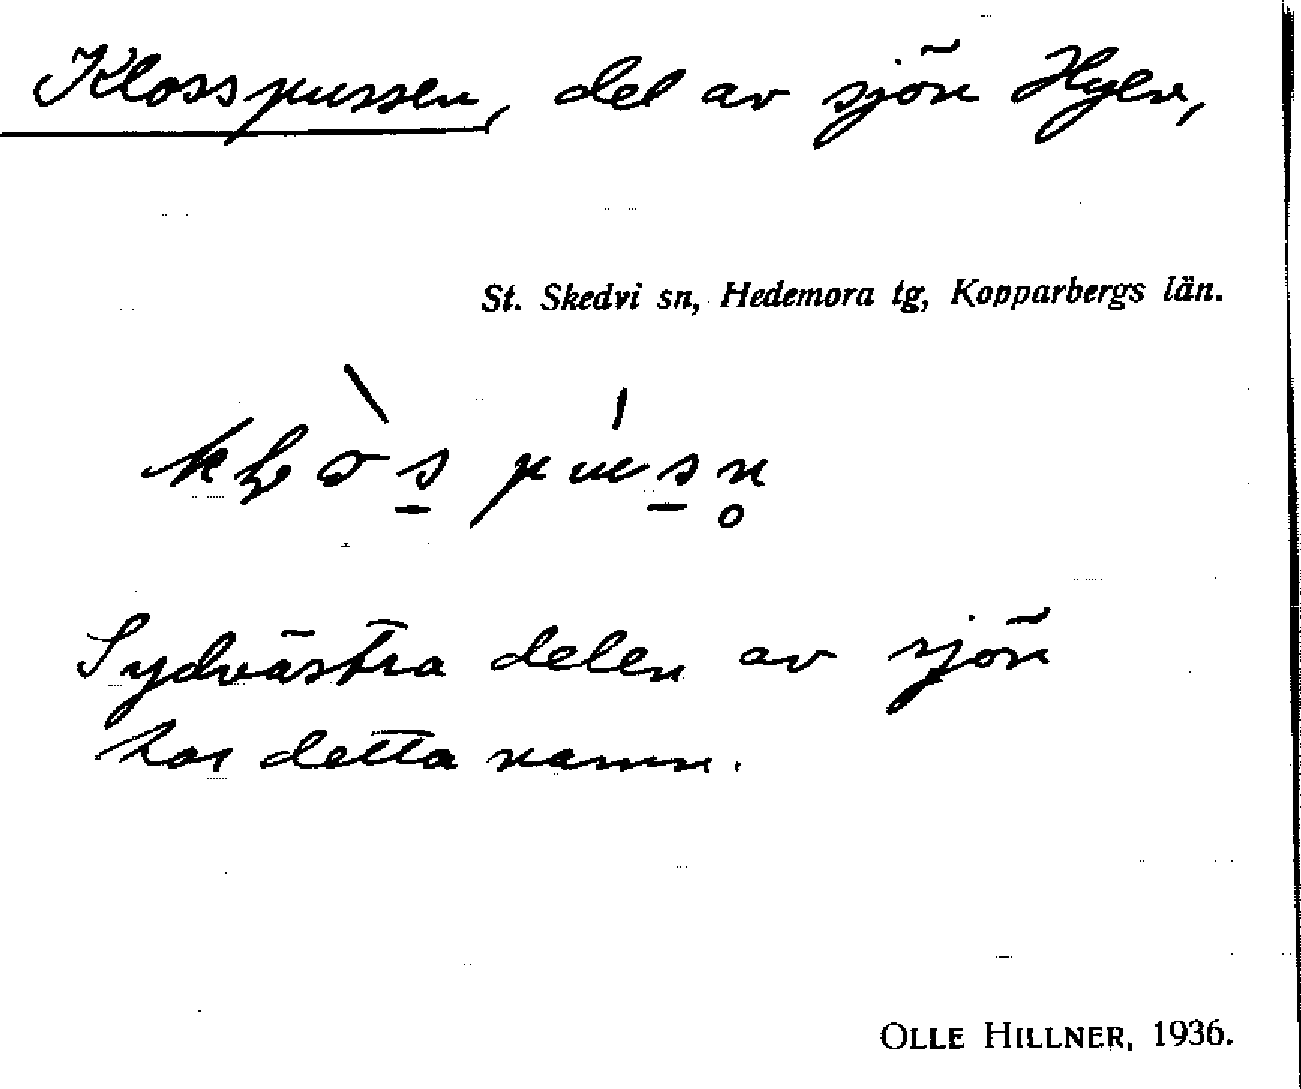 Klosspussen, del av sjön Hylen,
St. Skedvi sn, Hedemora tg, Kopparbergs län.
Sydvästra delen av sjön
har detta namn.
OLLE HILLNER, 1936.